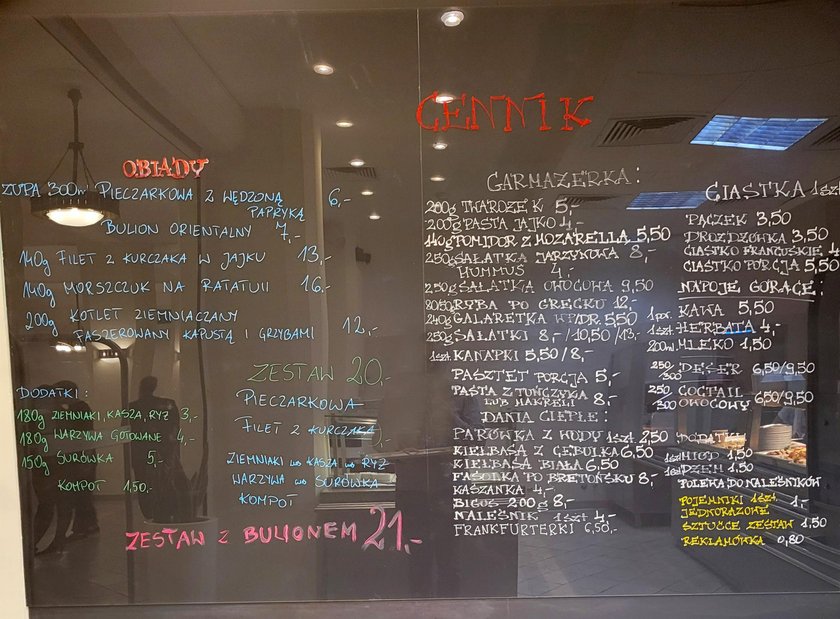 CENNIK
OBIADY
ZUPA 300ml PIECZARKOWA Z WĘDZONĄ 6,-
PAPRYKĄ
BULION ORIENTALNY 7,-
140g FILET Z KURCZAKA W JAJKU 13,-
140g MORSZCZUK NA RATATUII 16.-
200g KOTLET ZIEMNIACZANY
FASZEROWANY KAPUSTĄ I GRZYBAMI 12,-
DODATKI:
180g ZIEMNIAKI, KASZA, RYŻ 3,-
180g WARZYWA GOTOWANE 4,-
150g SURÓWKA 5,-
KOMPOT 1,50,-
ZESTAW 20,-
PIECZARKOWA
FILET Z KURCZAKA
ZIEMNIAKI lub KASZA lub RYŻ
WARZYWA lub SURÓWKA
KOMPOT
ZESTAW Z BULIONEM 21.-
GARMAŻERKA:
200g TWAROŻEK 5,-
200g PASTA JAJKO 4,-
140g POMIDOR Z MOZARELLĄ 5,50
250g SAŁATKA JARZYNOWA 8,-
HUMMUS 4,-
250g SAŁATKA OWOCOWA 9,50
RYBA PO GRECKU 12,-
240g GALARETKA WP/DR. 5,50
250g SAŁATKI 8,-/10,50/13,-
1szt. KANAPKI 5,50/8,-
PASZTET PORCJA 5,-
PASTA Z TUŃCZYKA 8,-
LUB MAKRELI
DANIA CIEPŁE:
PARÓWKA Z WODY 1szt. 2,50
KIEŁBASA Z CEBULKĄ 6,50
KIEŁBASA BIAŁA 6,50
FASOLKA PO BRETOŃSKU 8,-
KASZANKA 4,-
BIGOS 200g 8,-
NALEŚNIK 1szt 4,-
FRANKFURTERKI 6,50,-
CIASTKA 1szt
PĄCZEK 3,50
DROŻDŻÓWKA 3,50
CIASTKO FRANCUSKIE 4
CIASTKO PORCJA 5,50
NAPOJE GORĄCE:
1por. KAWA 5,50
1szt. HERBATA 4,-
200ml MLEKO 1,50
250/300 DESER 6,50/9,50
250/300 COCTAIL
OWOCOWY 6,50/9,50
DODATKI
MIÓD 1,50
DŻEM 1,50
POLEWA DO NALEŚNIKÓW
POJEMNIKI 1szt. 1,-
JEDNORAZOWE
SZTUĆCE ZESTAW 1,50
REKLAMÓWKA 0,80